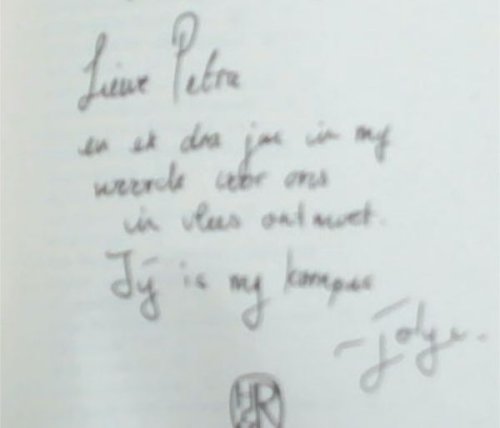 Liewe Petra
en ek dra jou in my
woorde voor ons
in vlees ontmoet.
Jy is my kompas